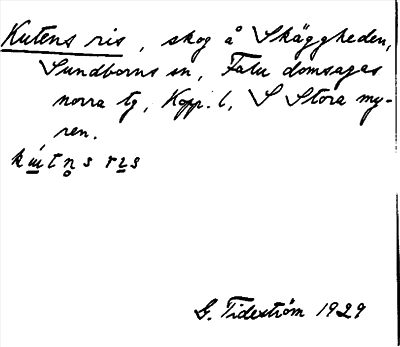 Kutens ris, skog å Skäggheden,
Sundborns sn, Falu domsagas
norra tg, Kopp. l, S Stora my-
ren.
G. Tideström 1929